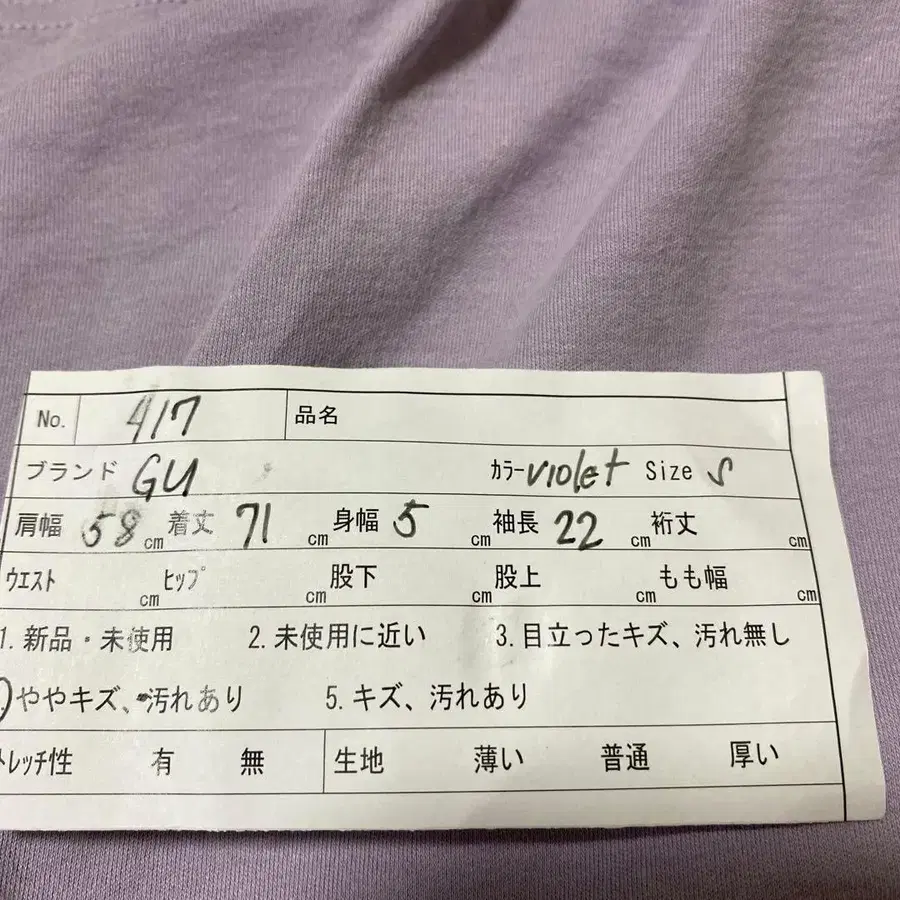 No. 417 品名
ブランド GU カラー violet Size S
肩幅 58 cm 着丈 71 cm 身幅 5 cm 袖長 22 cm 裄丈 cm
ウエスト cm ヒップ cm 股下 cm 股上 cm もも幅 cm
1. 新品・未使用 2. 未使用に近い 3. 目立ったキズ、汚れ無し
ややキズ、汚れあり 5. キズ、汚れあり
トレッチ性 有 無 生地 薄い 普通 厚い